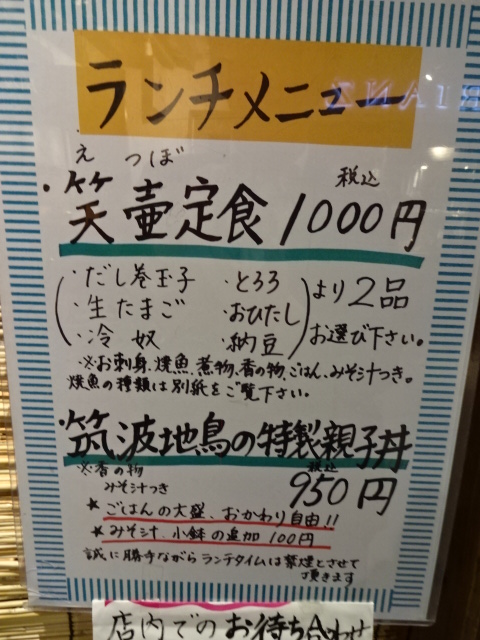 ランチメニュー
え つぼ
・笑壷定食 税込 1000円
・だし巻玉子 ・とろろ
・生たまご ・おひたし
・冷奴 ・納豆
より2品
お選び下さい。
※お刺身、焼魚、煮物、香の物、ごはん、みそ汁つき。
焼魚の種類は別紙をご覧下さい。
・筑波地鳥の特製親子丼
※香の物
みそ汁つき
税込
950円
★ごはんの大盛、おかわり自由!!
★みそ汁、小鉢の追加100円
誠に勝手ながらランチタイムは禁煙とさせて
頂きます
店内でのお待ち合わせ